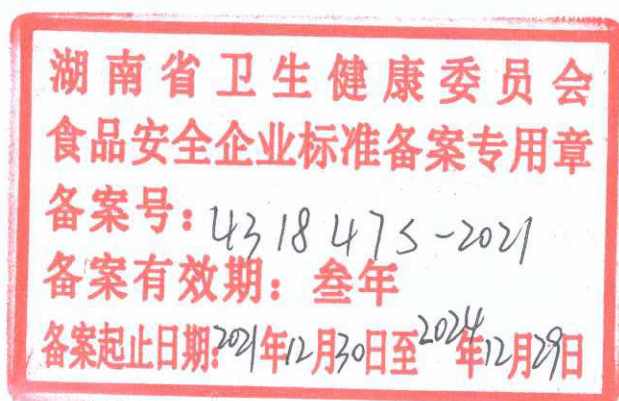 湖南省卫生健康委员会
食品安全企业标准备案专用章
备案号：4318475-2021
备案有效期：叁年
备案起止日期：2021年12月30日至2024年12月29日